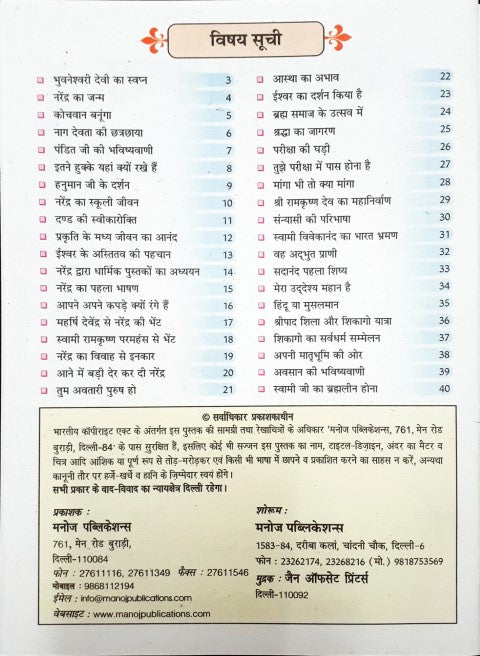 विषय सूची
भुवनेश्वरी देवी का स्वप्न 3
नरेंद्र का जन्म 4
कोचवान बनूंगा 5
नाग देवता की छत्रछाया 6
पंडित जी की भविष्यवाणी 7
इतने हुक्के यहां क्यों रखे हैं 8
हनुमान जी के दर्शन 9
नरेंद्र का स्कूली जीवन 10
दण्ड की स्वीकारोक्ति 11
प्रकृति के मध्य जीवन का आनंद 12
ईश्वर के अस्तितव की पहचान 13
नरेंद्र द्वारा धार्मिक पुस्तकों का अध्ययन 14
नरेंद्र का पहला भाषण 15
आपने अपने कपड़े क्यों रंगे हैं 16
महर्षि देवेंद्र से नरेंद्र की भेंट 17
स्वामी रामकृष्ण परमहंस से भेंट 18
नरेंद्र का विवाह से इनकार 19
आने में बड़ी देर कर दी नरेंद्र 20
तुम अवतारी पुरुष हो 21
आस्था का अभाव 22
ईश्वर का दर्शन किया है 23
ब्रह्म समाज के उत्सव में 24
श्रद्धा का जागरण 25
परीक्षा की घड़ी 26
तुझे परीक्षा में पास होना है 27
मांगा भी तो क्या मांगा 28
श्री रामकृष्ण देव का महानिर्वाण 29
संन्यासी की परिभाषा 30
स्वामी विवेकानंद का भारत भ्रमण 31
वह अद्भुत प्राणी 32
सदानंद पहला शिष्य 33
मेरा उद्देश्य महान है 34
हिंदू या मुसलमान 35
श्रीपाद शिला और शिकागो यात्रा 36
शिकागो का सर्वधर्म सम्मेलन 37
अपनी मातृभूमि की ओर 38
अवसान की भविष्यवाणी 39
स्वामी जी का ब्रह्मलीन होना 40
© सर्वाधिकार प्रकाशकाधीन
भारतीय कॉपीराइट एक्ट के अंतर्गत इस पुस्तक की सामग्री तथा रेखाचित्रों के अधिकार 'मनोज पब्लिकेशन्स, 761, मेन रोड
बुराड़ी, दिल्ली-84' के पास सुरक्षित हैं, इसलिए कोई भी सज्जन इस पुस्तक का नाम, टाइटल-डिज़ाइन, अंदर का मैटर व
चित्र आदि आंशिक या पूर्ण रूप से तोड़-मरोड़कर एवं किसी भी भाषा में छापने व प्रकाशित करने का साहस न करें, अन्यथा
कानूनी तौर पर हर्जे-खर्चे व हानि के ज़िम्मेदार स्वयं होंगे।
सभी प्रकार के वाद-विवाद का न्यायक्षेत्र दिल्ली रहेगा।
प्रकाशक :
मनोज पब्लिकेशन्स
761, मेन रोड बुराड़ी,
दिल्ली-110084
फोन : 27611116, 27611349 फैक्स : 27611546
मोबाइल : 9868112194
ईमेल : info@manojpublications.com
वेबसाइट : www.manojpublications.com
शोरूम :
मनोज पब्लिकेशन्स
1583-84, दरीबा कलां, चांदनी चौक, दिल्ली-6
फोन : 23262174, 23268216 (मो.) 9818753569
मुद्रक : जैन ऑफसेट प्रिंटर्स
दिल्ली-110092